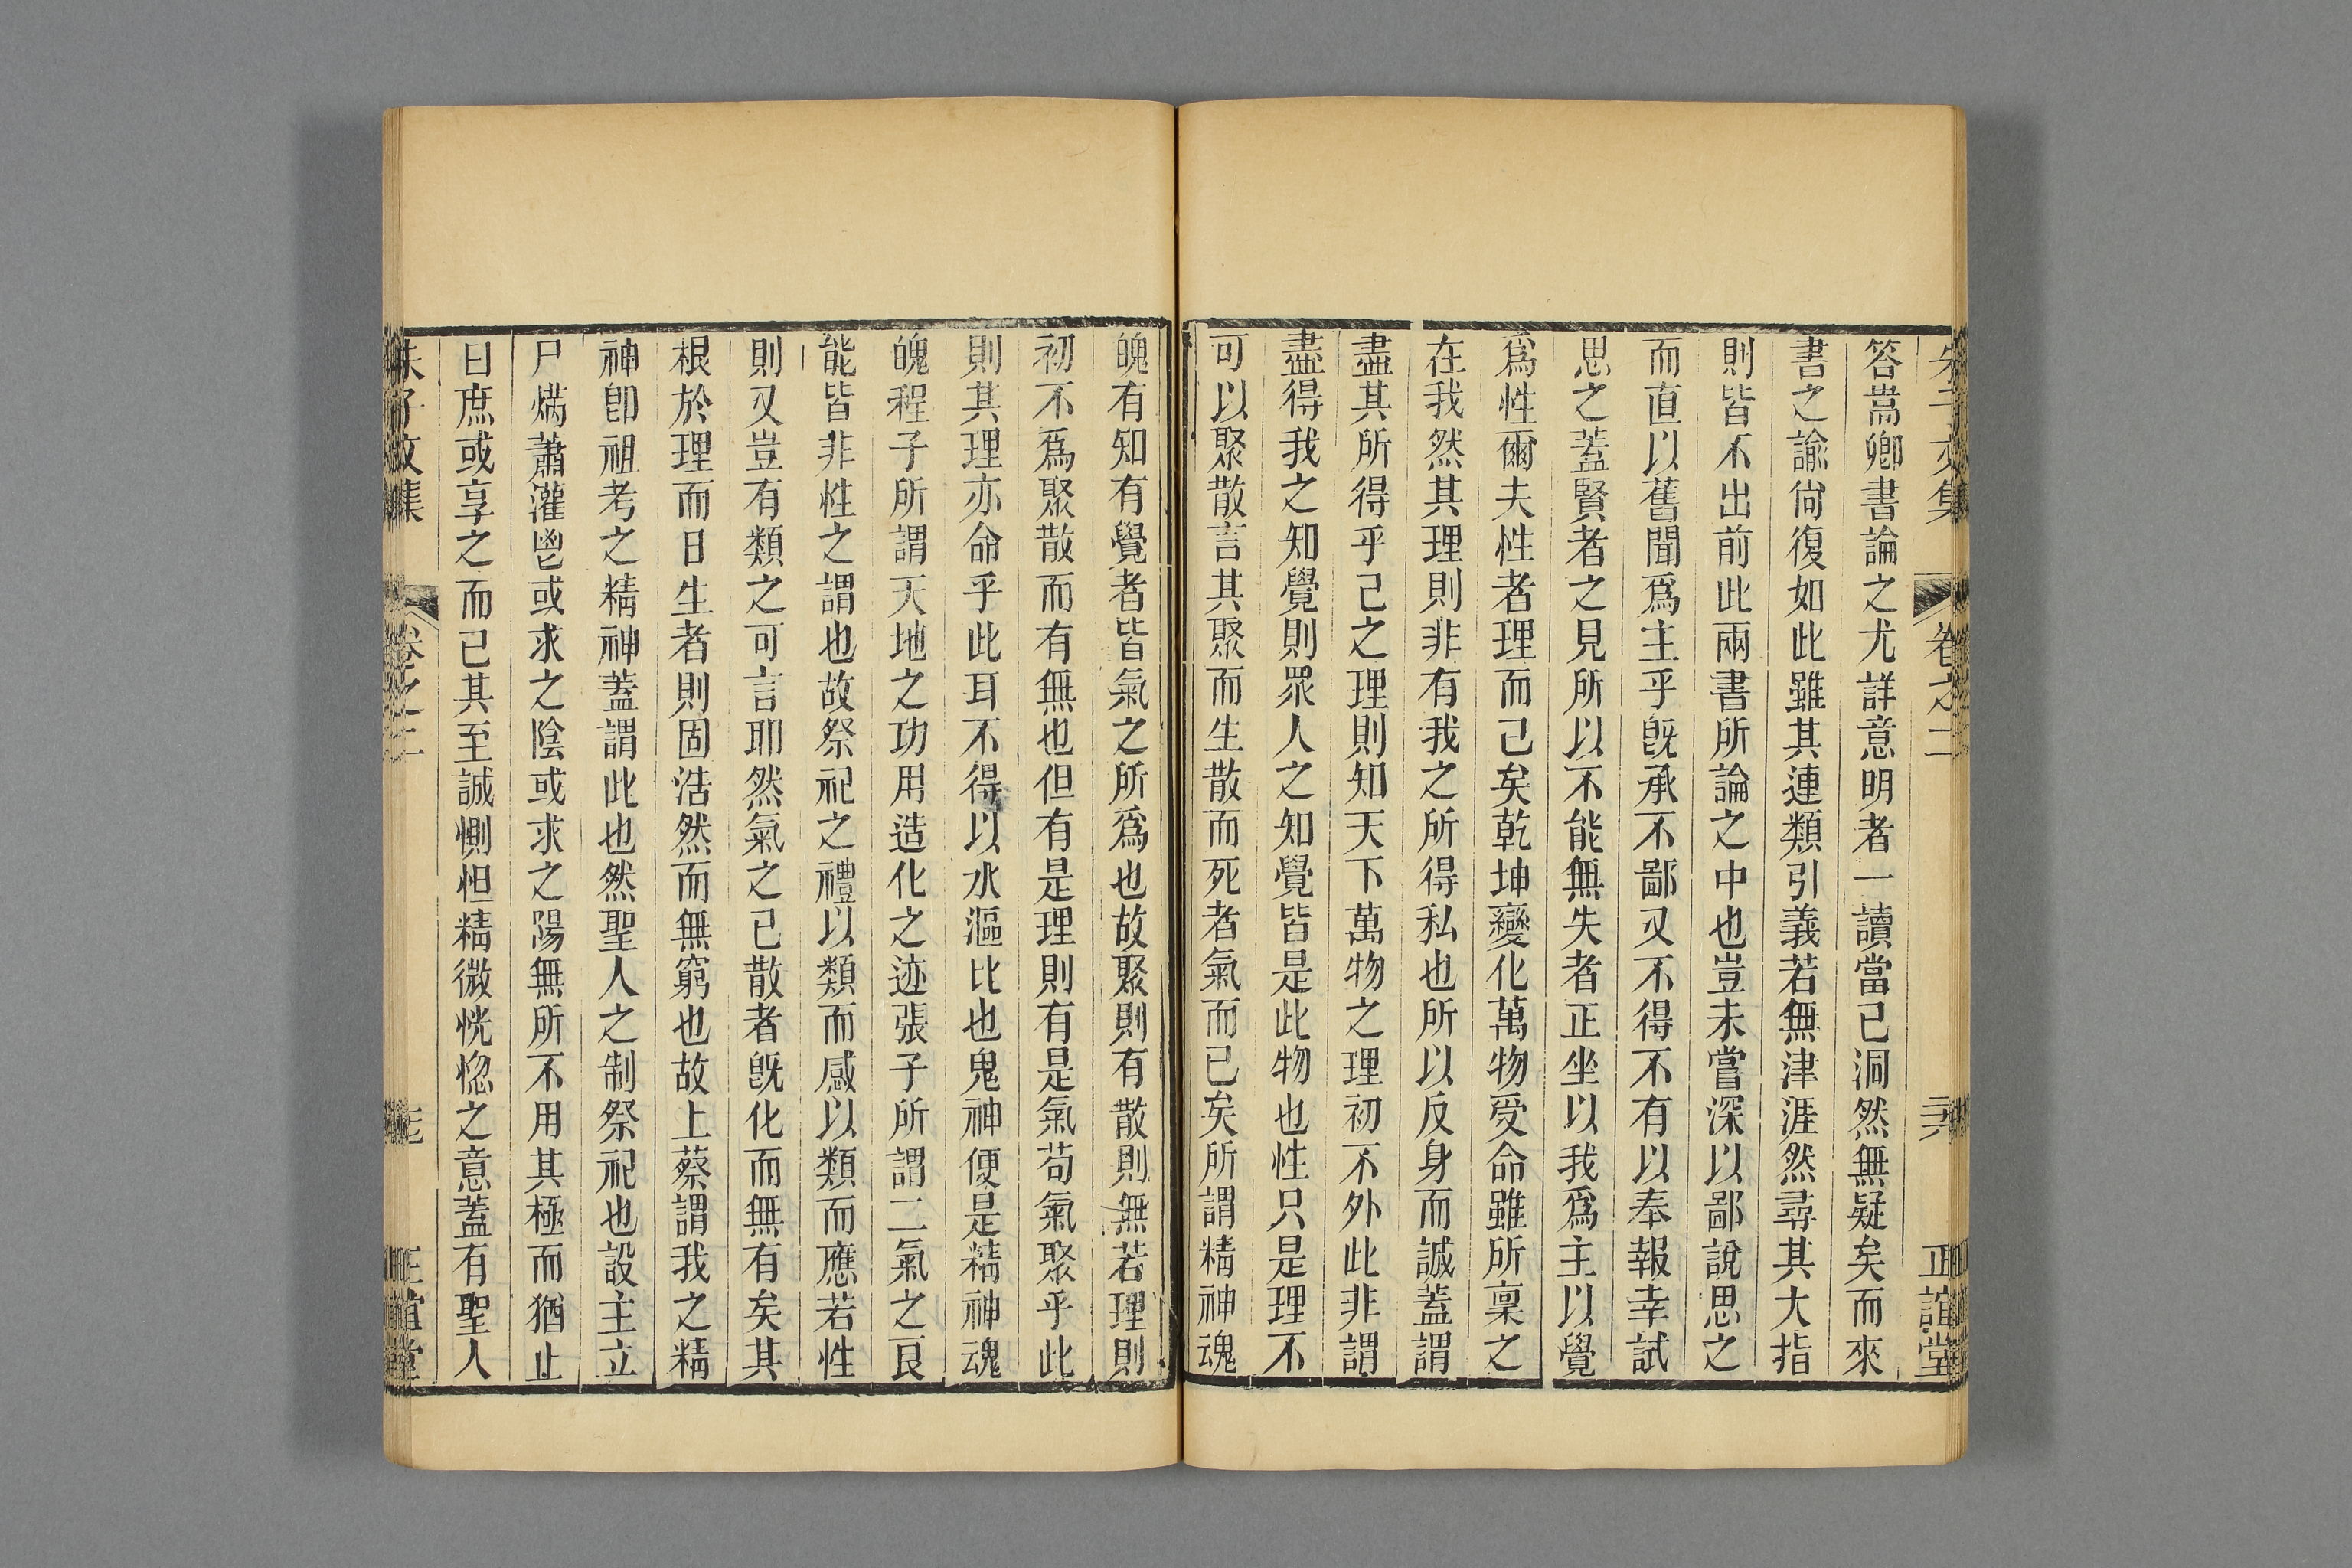 朱子文集
卷之二
三六
正誼堂
答嵩卿書論之尤詳意明者一讀當已洞然無疑矣而來
書之諭尙復如此雖其連類引義若無津涯然尋其大指
則皆不出前此兩書所論之中也豈未嘗深以鄙說思之
而直以舊聞爲主乎旣承不鄙又不得不有以奉報幸試
思之蓋賢者之見所以不能無失者正坐以我爲主以覺
爲性爾夫性者理而已矣乾坤變化萬物受命雖所稟之
在我然其理則非有我之所得私也所以反身而誠蓋謂
盡其所得乎己之理則知天下萬物之理初不外此非謂
盡得我之知覺則眾人之知覺皆是此物也性只是理不
可以聚散言其聚而生散而死者氣而已矣所謂精神魂
魄有知有覺者皆氣之所爲也故聚則有散則無若理則
初不爲聚散而有無也但有是理則有是氣苟氣聚乎此
則其理亦命乎此耳不得以水漚比也鬼神便是精神魂
魄程子所謂天地之功用造化之迹張子所謂二氣之良
能皆非性之謂也故祭祀之禮以類而感以類而應若性
則又豈有類之可言耶然氣之已散者旣化而無有矣其
根於理而日生者則固浩然而無窮也故上蔡謂我之精
神卽祖考之精神蓋謂此也然聖人之制祭祀也設主立
尸焫蕭灌鬯或求之陰或求之陽無所不用其極而猶止
曰庶或享之而已其至誠惻怛精微恍惚之意蓋有聖人
朱子文集
卷之二
正誼堂